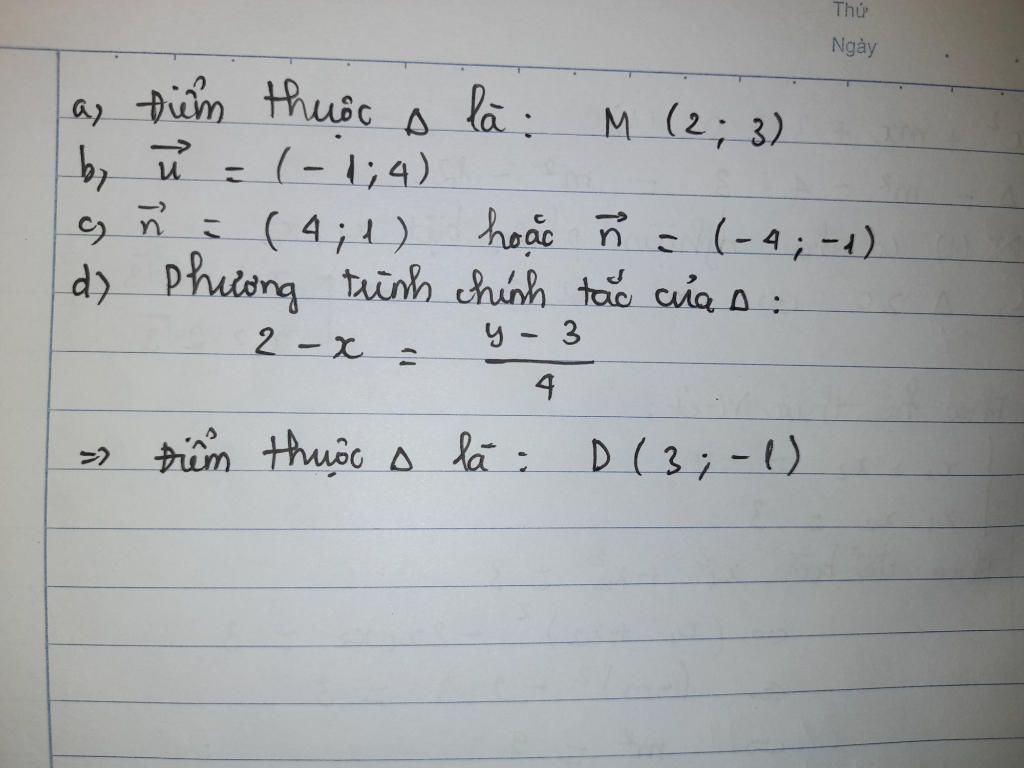 Thứ
Ngày
a, Điểm thuộc Δ là : M (2 ; 3)
b, $\vec{u}$ = (-1 ; 4)
c, $\vec{n}$ = (4 ; 1) hoặc $\vec{n}$ = (-4 ; -1)
d) Phương trình chính tắc của Δ :
2 - x = $\frac{y - 3}{4}$
=> Điểm thuộc Δ là : D (3 ; -1)